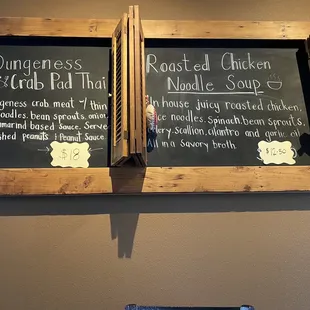 Dungeness
Crab Pad Thai
ngeness crab meat w/ thin
noodles, bean sprouts, onion,
amarind based sauce. Serve
shed peanuts & Peanut Sauce
$18
Roasted Chicken
Noodle Soup
In house juicy roasted chicken,
rice noodles, Spinach, bean Sprouts,
celery, Scallion, cilantro and garlic oil
All in a Savory broth
$12.50